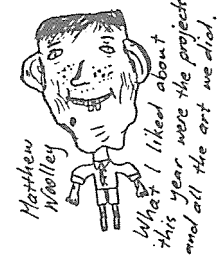 Matthew
Woolley
What I liked about
this year were the projects
and all the art we did.